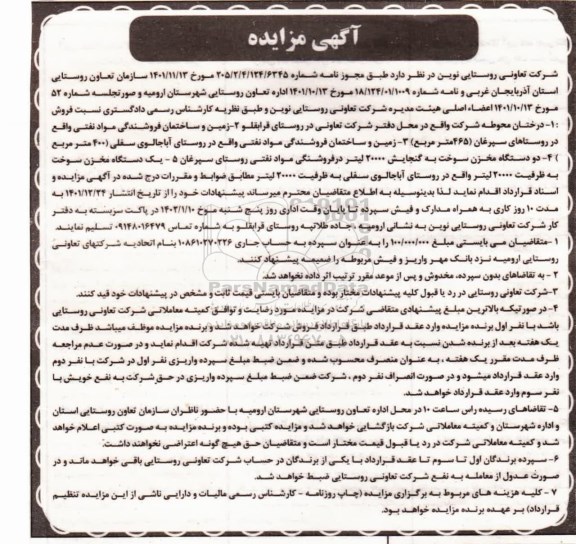 آگهی مزایده
شرکت تعاونی روستایی نوین در نظر دارد طبق مجوز نامه شماره ۲۰۵/۲/۴/۱۲۴/۶۳۴۵ مورخ ۱۴۰۱/۱۱/۱۳ سازمان تعاون روستایی
استان آذربایجان غربی و نامه شماره ۱۸/۱۲۴/۰۱/۱۰۰۹ مورخ ۱۴۰۱/۱۰/۱۳ اداره تعاون روستایی شهرستان ارومیه و صورتجلسه شماره ۵۲
مورخ ۱۴۰۱/۱۰/۱۳ اعضاء اصلی هیئت مدیره شرکت تعاونی روستایی نوین و طبق نظریه کارشناس رسمی دادگستری نسبت فروش
: ۱-درختان محوطه شرکت واقع در محل دفتر شرکت تعاونی در روستای قرابقلو ۲-زمین و ساختمان فروشندگی مواد نفتی واقع
در روستاهای سپرغان (۴۶۵متر مربع) ۳-زمین و ساختمان فروشندگی مواد نفتی واقع در روستای آباجالوی سفلی (۴۰۰ متر مربع
) ۴-دو دستگاه مخزن سوخت به گنجایش ۲۰۰۰۰ لیتر درفروشندگی مواد نفتی روستای سپرغان ۵- یک دستگاه مخزن سوخت
به ظرفیت ۲۰۰۰۰ لیتر واقع در روستای آباجالوی سفلی به ظرفیت ۲۰۰۰۰ لیتر مطابق ضوابط و مقررات درج شده در آگهی مزایده و
اسناد قرارداد اقدام نماید لذا بدینوسیله به اطلاع متقاضیان محترم میرساند پیشنهادات خود را از تاریخ انتشار ۱۴۰۱/۱۲/۲۴ به
مدت ۱۰ روز کاری به همراه مدارک و فیش سپرده تا پایان وقت اداری روز پنج شنبه مورخ ۱۴۰۲/۱/۱۰ در پاکت سربسته به دفتر
کار شرکت تعاونی روستایی نوین به نشانی ارومیه جاده طلاتپه روستای قرابقلو به شماره تماس ۰۹۱۴۸۰۱۶۴۷۹ تسلیم نمایند.
۱ -متقاضیان می بایستی مبلغ ۱۰۰/۰۰۰/۰۰۰ را به عنوان سپرده به حساب جاری ۱۰۸۶۱۰۲۷۰۲۳۶ بنام اتحادیه شرکتهای تعاونی
روستایی ارومیه نزد بانک مهر واریز و فیش مربوطه را ضمیمه پیشنهاد کنند.
۲ - به تقاضاهای بدون سپرده، مخدوش و پس از موعد مقرر ترتیب اثر داده نخواهد شد.
۳-شرکت تعاونی روستایی در رد یا قبول کلیه پیشنهادات مختار بوده و متقاضیان بایستی قیمت ثابت و مشخص در پیشنهادات خود قید کنند.
۴- در صورتیکه بالاترین مبلغ پیشنهادی متقاضی شرکت در مزایده مورد رضایت و توافق کمیته معاملاتی شرکت تعاونی روستایی
باشد با نفر اول برنده مزایده وارد عقد قرارداد طبق قرارداد فروش شرکت خواهد شد و برنده مزایده موظف میباشد ظرف مدت
یک هفته بعد از برنده شدن نسبت به عقد قرارداد طبق متن قرارداد تهیه شده شرکت اقدام نماید و در صورت عدم مراجعه
ظرف مدت مقرر یک هفته ، به عنوان منصرف محسوب شده و ضمن ضبط مبلغ سپرده واریزی نفر اول در شرکت با نفر دوم
وارد عقد قرارداد میشود و در صورت انصراف نفر دوم ، شرکت ضمن ضبط مبلغ سپرده واریزی در حق شرکت به نفع خویش با
نفر سوم وارد عقد قرارداد خواهد شد.
۵- تقاضاهای رسیده راس ساعت ۱۰ در محل اداره تعاون روستایی شهرستان ارومیه با حضور ناظران سازمان تعاون روستایی استان
و اداره شهرستان و کمیته معاملاتی شرکت بازگشایی خواهد شد و مزایده کتبی بوده و برنده مزایده به صورت کتبی اعلام خواهد
شد و کمیته معاملاتی شرکت در رد یا قبول قیمت مختار است و متقاضیان حق هیچ گونه اعتراضی نخواهند داشت.
۶- سپرده برندگان اول تا سوم تا عقد قرارداد با یکی از برندگان در حساب شرکت تعاونی روستایی باقی خواهد ماند و در
صورت عدول از معامله به نفع شرکت تعاونی روستایی ضبط خواهد شد.
۷ - کلیه هزینه های مربوط به برگزاری مزایده (چاپ روزنامه - کارشناس رسمی مالیات و دارایی ناشی از این مزایده تنظیم
قرارداد) بر عهده برنده مزایده خواهد بود.
ParsNamadData